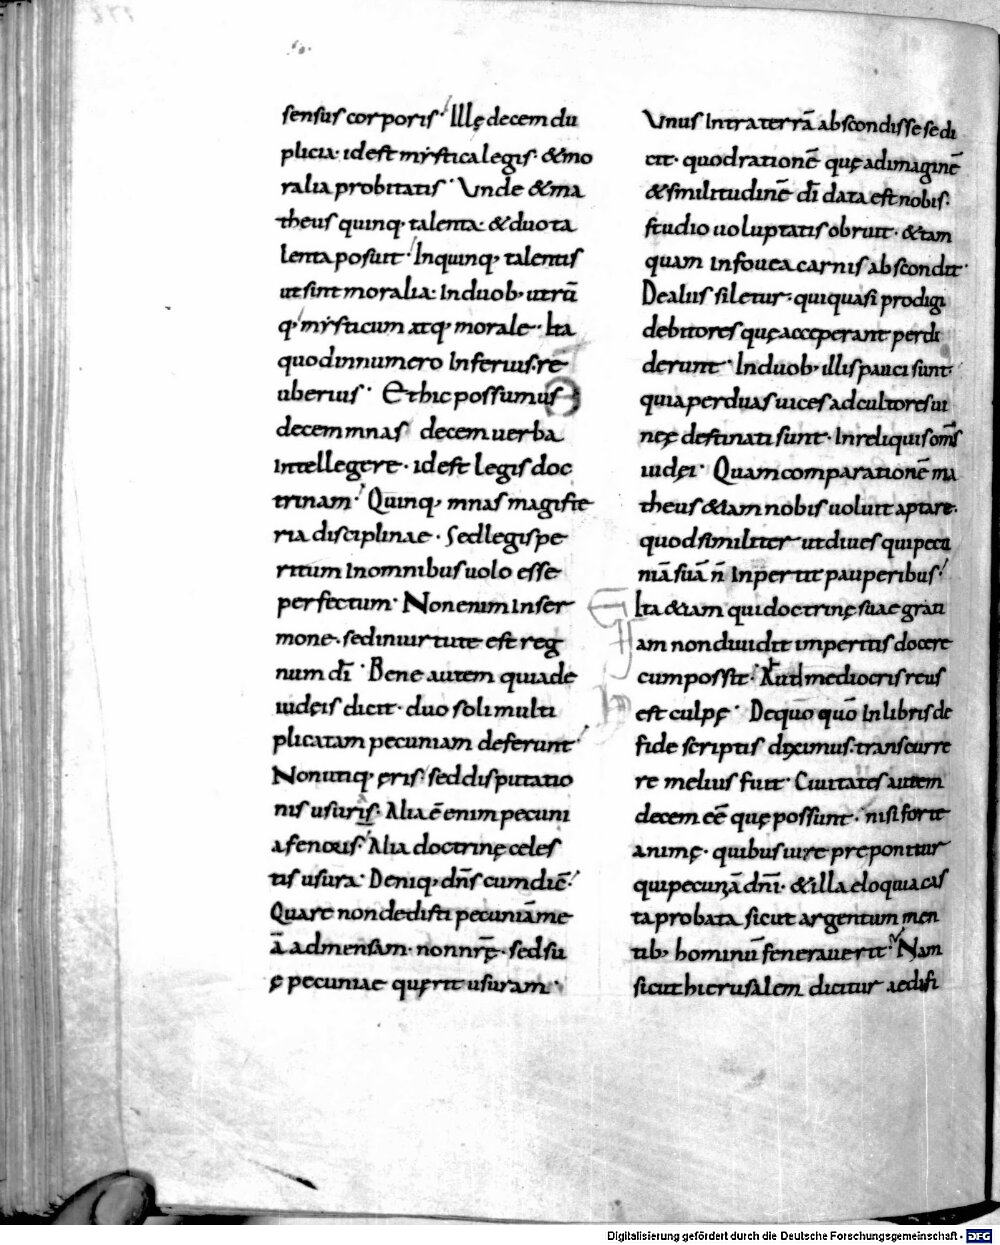 sensus corporis· Illę decem du
plicia· id est mẏstica legis· & mo
ralia probitatis· Unde & ma
theus quinq· talenta· & duo ta
lenta posuit· In quinq· talentis
ut sint moralia· In duob· utrū
q· mẏsticum atq· morale· Ita
quod in numero inferius· re
uberius· Et hic possumus
decem mnas decem uerba
intellegere· id est legis doc
trinam· Quinq· mnas magiste
ria disciplinae· Sed legis pe
ritum in omnibus uolo esse
perfectum· Non enim in ser
mone· sed in uirtute est reg
num dī· Bene autem quia de
iudęis dicit· duo soli multi
plicatam pecuniam deferunt·
Non utiq· ęris· sed disputatio
nis usuris· Alia ē enim pecuni
a fenoris· Alia doctrinę celes
tis usura· Deniq· dn̄s cum dic̄·
Quare non dedisti pecuniā me
ā ad mensam· non nr̄ę· sed su
ę pecuniae quęrit usuram·
Unus intra terrā abscondisse se di
cit· quod rationē quę ad imaginē
& similitudinē dī data est nobis·
studio uoluptatis obruit· & tam
quam in fouea carnis abscondit·
De alus siletur· qui quasi prodigi
debitores quę acceperant perdi
derunt· In duob· illis pauci sunt·
quia per duas uices ad cultores ui
nęę destinati sunt· In reliquis om̄s
iudęi· Quam comparationē ma
theus & iam nobis uoluit aptare·
quod similiter ut diues qui pecu
niā suā n̄ inpertit pauperibus·
Ita & iam qui doctrinę suae grati
am non diuidit imperitis docere
cum possit· haud mediocris reus
est culpę· De quō quō in libris de
fide scriptis diximus· transcurre
re melius fuit· Ciuitates autem
decem eē quę possunt· nisi forte
animę· quibus iure preponitur
qui pecuniā dn̄i· & illa eloquia cas
ta probata sicut argentum men
tib· hominū fenerauerit· Nam
sicut hierusalem dicitur aedifi
Digitalisierung gefördert durch die Deutsche Forschungsgemeinschaft - DFG